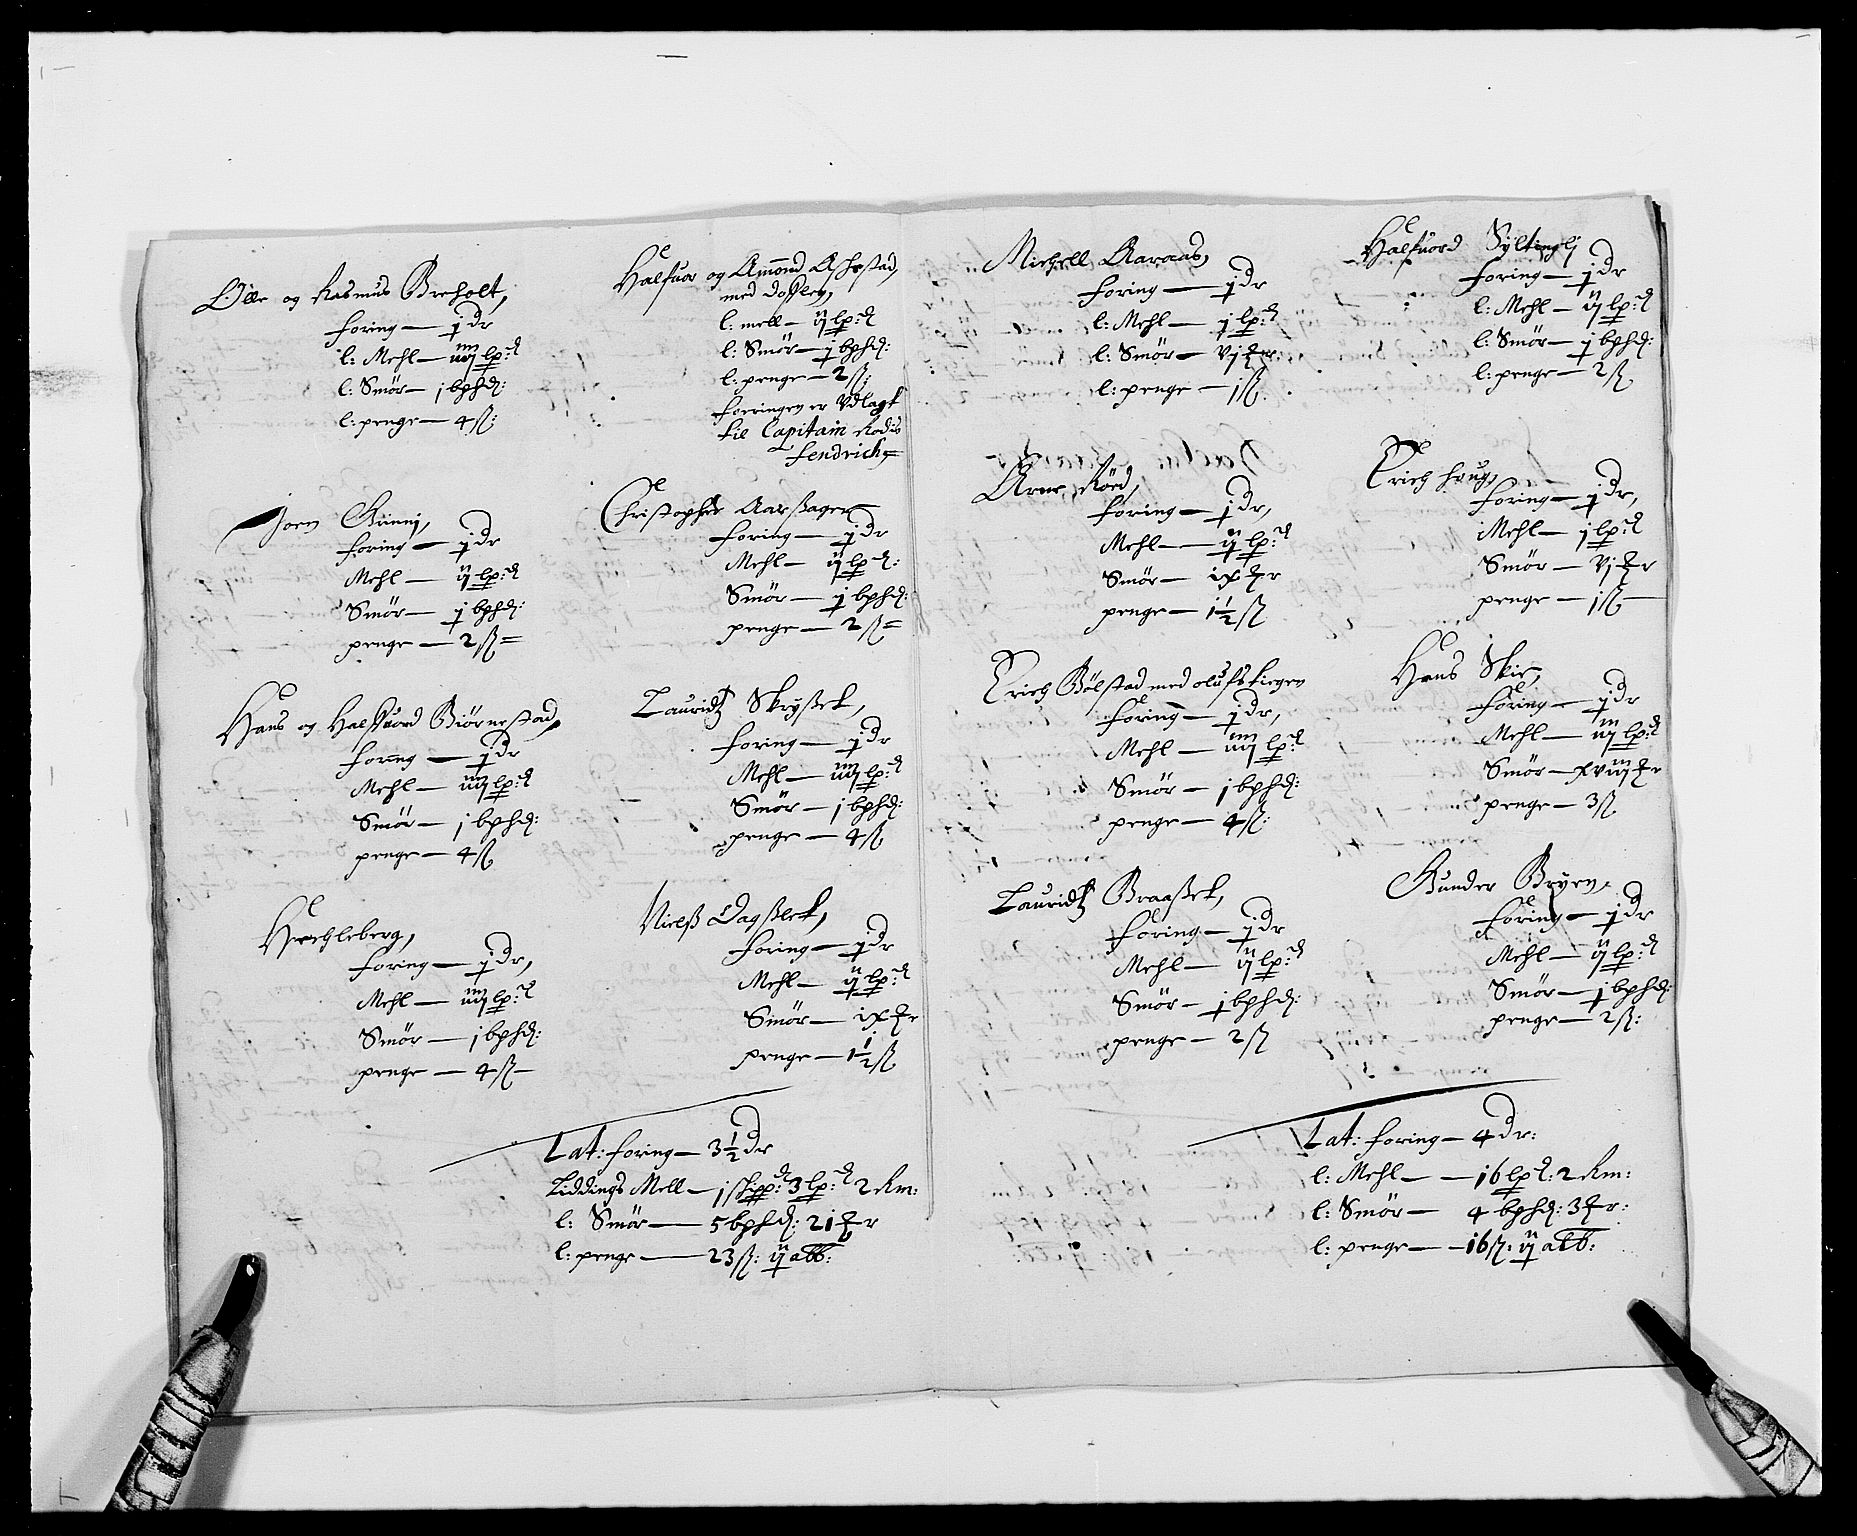 Olle og Rasmus Breholt,
foring — j dr
l: Mehl — iiij lp:d
l: Smör — j bphd:
l: penge — 4 ß:
Joen Gunnj,
foring — j dr
Mehl — ij lp:d
Smör — j bphd:
penge — 2 ß =
Hans og Halfuord Biörnestad,
foring — j dr
Mehl — iiij lp:d
Smör — j bphd:
penge — 4 ß
foring — j dr,
Mehl — iiij lp:d
Smör — j bphd:
penge — 4 ß —
Halfuor og Amond
med
l: mell — ij lp:d
l: Smör — j bphd:
l: penge — 2 ß:
foeringen er Vdlagt
til Capitain Rodis
fendrich =
Christopher Aarßagen
foring — j dr
Mehl — ij lp:d:
Smör — j bphd:
penge — 2 ß =
Lauridtz Skryßet,
foring — j dr
Mehl — iiij lp:d
Smör — j bphd:
penge — 4 ß
Nielß Dagßlet,
foring — j dr
Mehl — ij lp:d
Smör — ix mr
penge — 1½ ß
Lat: foring — 3½ dr
Liddings Mell — j skpp: 3 lp:d 2 Rm:
l: Smör — 5 bphd: 21 mr
l: penge — 23 ß: ij alb:
Michell Aaraas,
foring — j dr
l: Mehl — j lp:d
l: Smör — vj mr
l: penge — j ß
Arne Röed,
foring — j dr,
Mehl — ij lp:d
Smör — ix mr
penge — 1½ ß
Erich Bölstad med olufs
foring — j dr,
Mehl — iiij lp:d
Smör — j bphd:
penge — 4 ß:
Lauridtz Braaßet,
foring — j dr
Mehl — ij lp:d
Smör — j bphd:
penge — 2 ß
Halfuord Syltinglj
foring — j dr
l: Mehl — ij lp:d
l: Smör — j bphd:
l: penge — 2 ß
Erich houg,
foring — j dr,
Mehl — j lp:d
Smör — vj mr
penge — j ß —
Hans Skie,
foring — j dr
Mehl — iij lp:d
Smör — xviij mr
penge — 3 ß
Gunder Bryen
foring — j dr
Mehl — ij lp:d
Smör — j bphd:
penge — 2 ß:
Lat: foring — 4 dr:
l: Mehl — 16 lp:d: 2 Rm:
l: Smör — 4 bphd: 3 mr:
l: penge — 16 ß: ij alb: